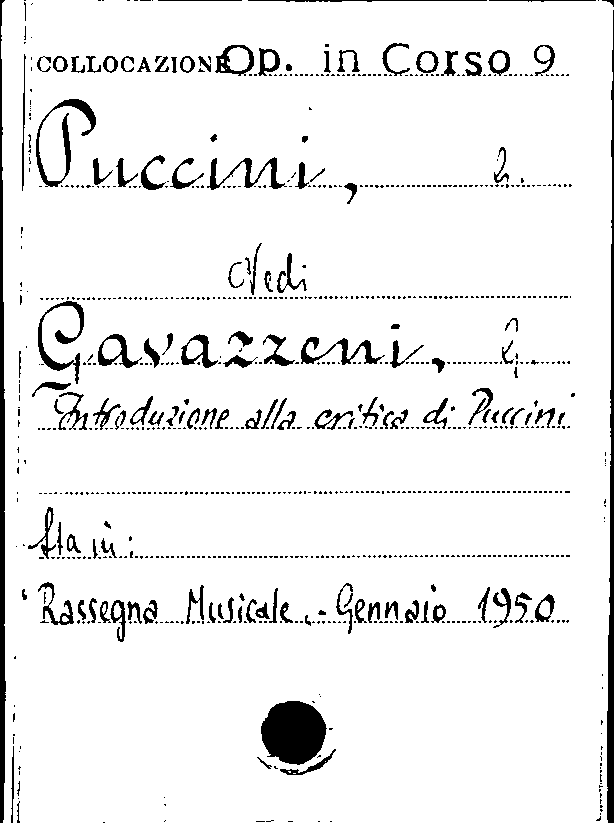 COLLOCAZIONE Op. in Corso 9
Puccini,
Vedi
Gavazzeni, G.
Introduzione alla critica di Puccini
Sta in:
Rassegna Musicale.- Gennaio 1950